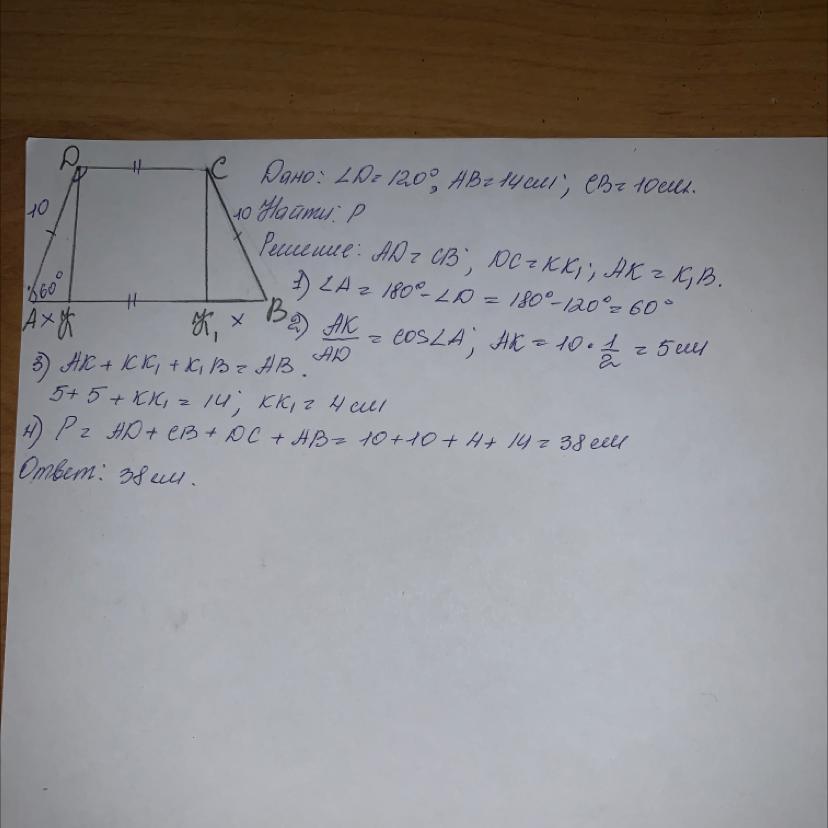 D C
10 10
60°
A x K K₁ x B
Дано: ∠D = 120°, AB = 14 см; CB = 10 см.
Найти: P
Решение: AD = CB; DC = KK₁; AK = K₁B.
1) ∠A = 180° - ∠D = 180° - 120° = 60°
2) AK/AD = cos∠A; AK = 10 · 1/2 = 5 см
3) AK + KK₁ + K₁B = AB.
5 + 5 + KK₁ = 14; KK₁ = 4 см
4) P = AD + CB + DC + AB = 10 + 10 + 4 + 14 = 38 см
Ответ: 38 см.